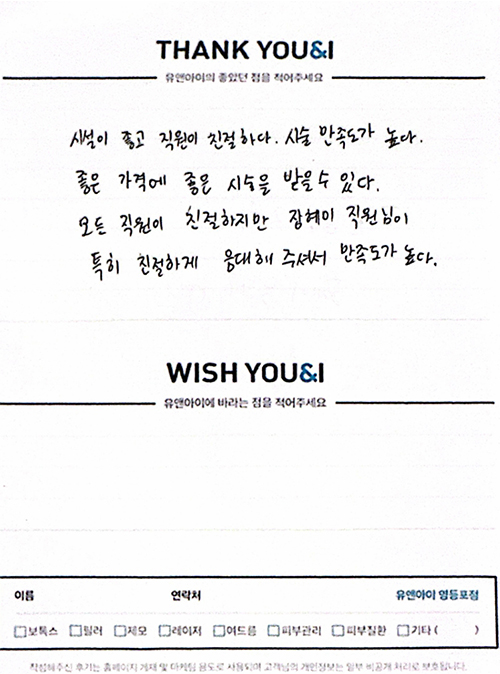 THANK YOU&I
유앤아이의 좋았던 점을 적어주세요
시설이 좋고 직원이 친절하다. 시술 만족도가 높다.
좋은 가격에 좋은 시술을 받을수 있다.
모든 직원이 친절하지만 장혜미 직원님이
특히 친절하게 응대해 주셔서 만족도가 높다.
WISH YOU&I
유앤아이에 바라는 점을 적어주세요
이름 연락처 유앤아이 영등포점
보톡스 필러 제모 레이저 여드름 피부관리 피부질환 기타 ( )
작성해주신 후기는 홈페이지 게재 및 마케팅 용도로 사용되며 고객님의 개인정보는 일부 비공개 처리로 보호됩니다.